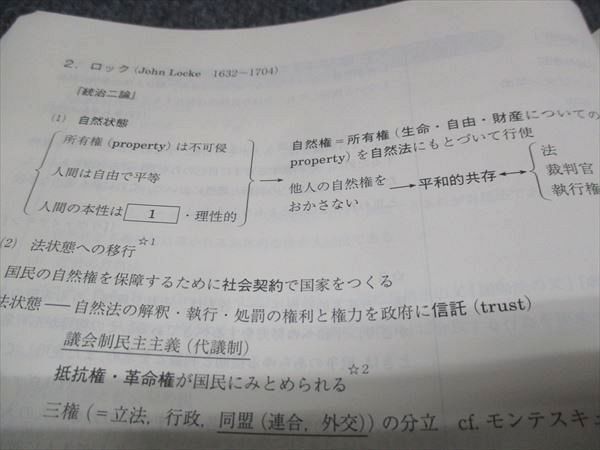 2. ロック (John Locke 1632~1704)
『統治二論』
(1) 自然状態
所有権 (property) は不可侵
人間は自由で平等
人間の本性は 1 ・理性的
自然権=所有権 (生命・自由・財産についての
property) を自然法にもとづいて行使
他人の自然権を
おかさない
平和的共存
法
裁判官
執行権
(2) 法状態への移行☆1
国民の自然権を保障するために社会契約で国家をつくる
法状態 ── 自然法の解釈・執行・処罰の権利と権力を政府に信託 (trust)
議会制民主主義 (代議制)
抵抗権・革命権が国民にみとめられる☆2
三権 (=立法, 行政, 同盟 (連合, 外交)) の分立 cf. モンテスキュ